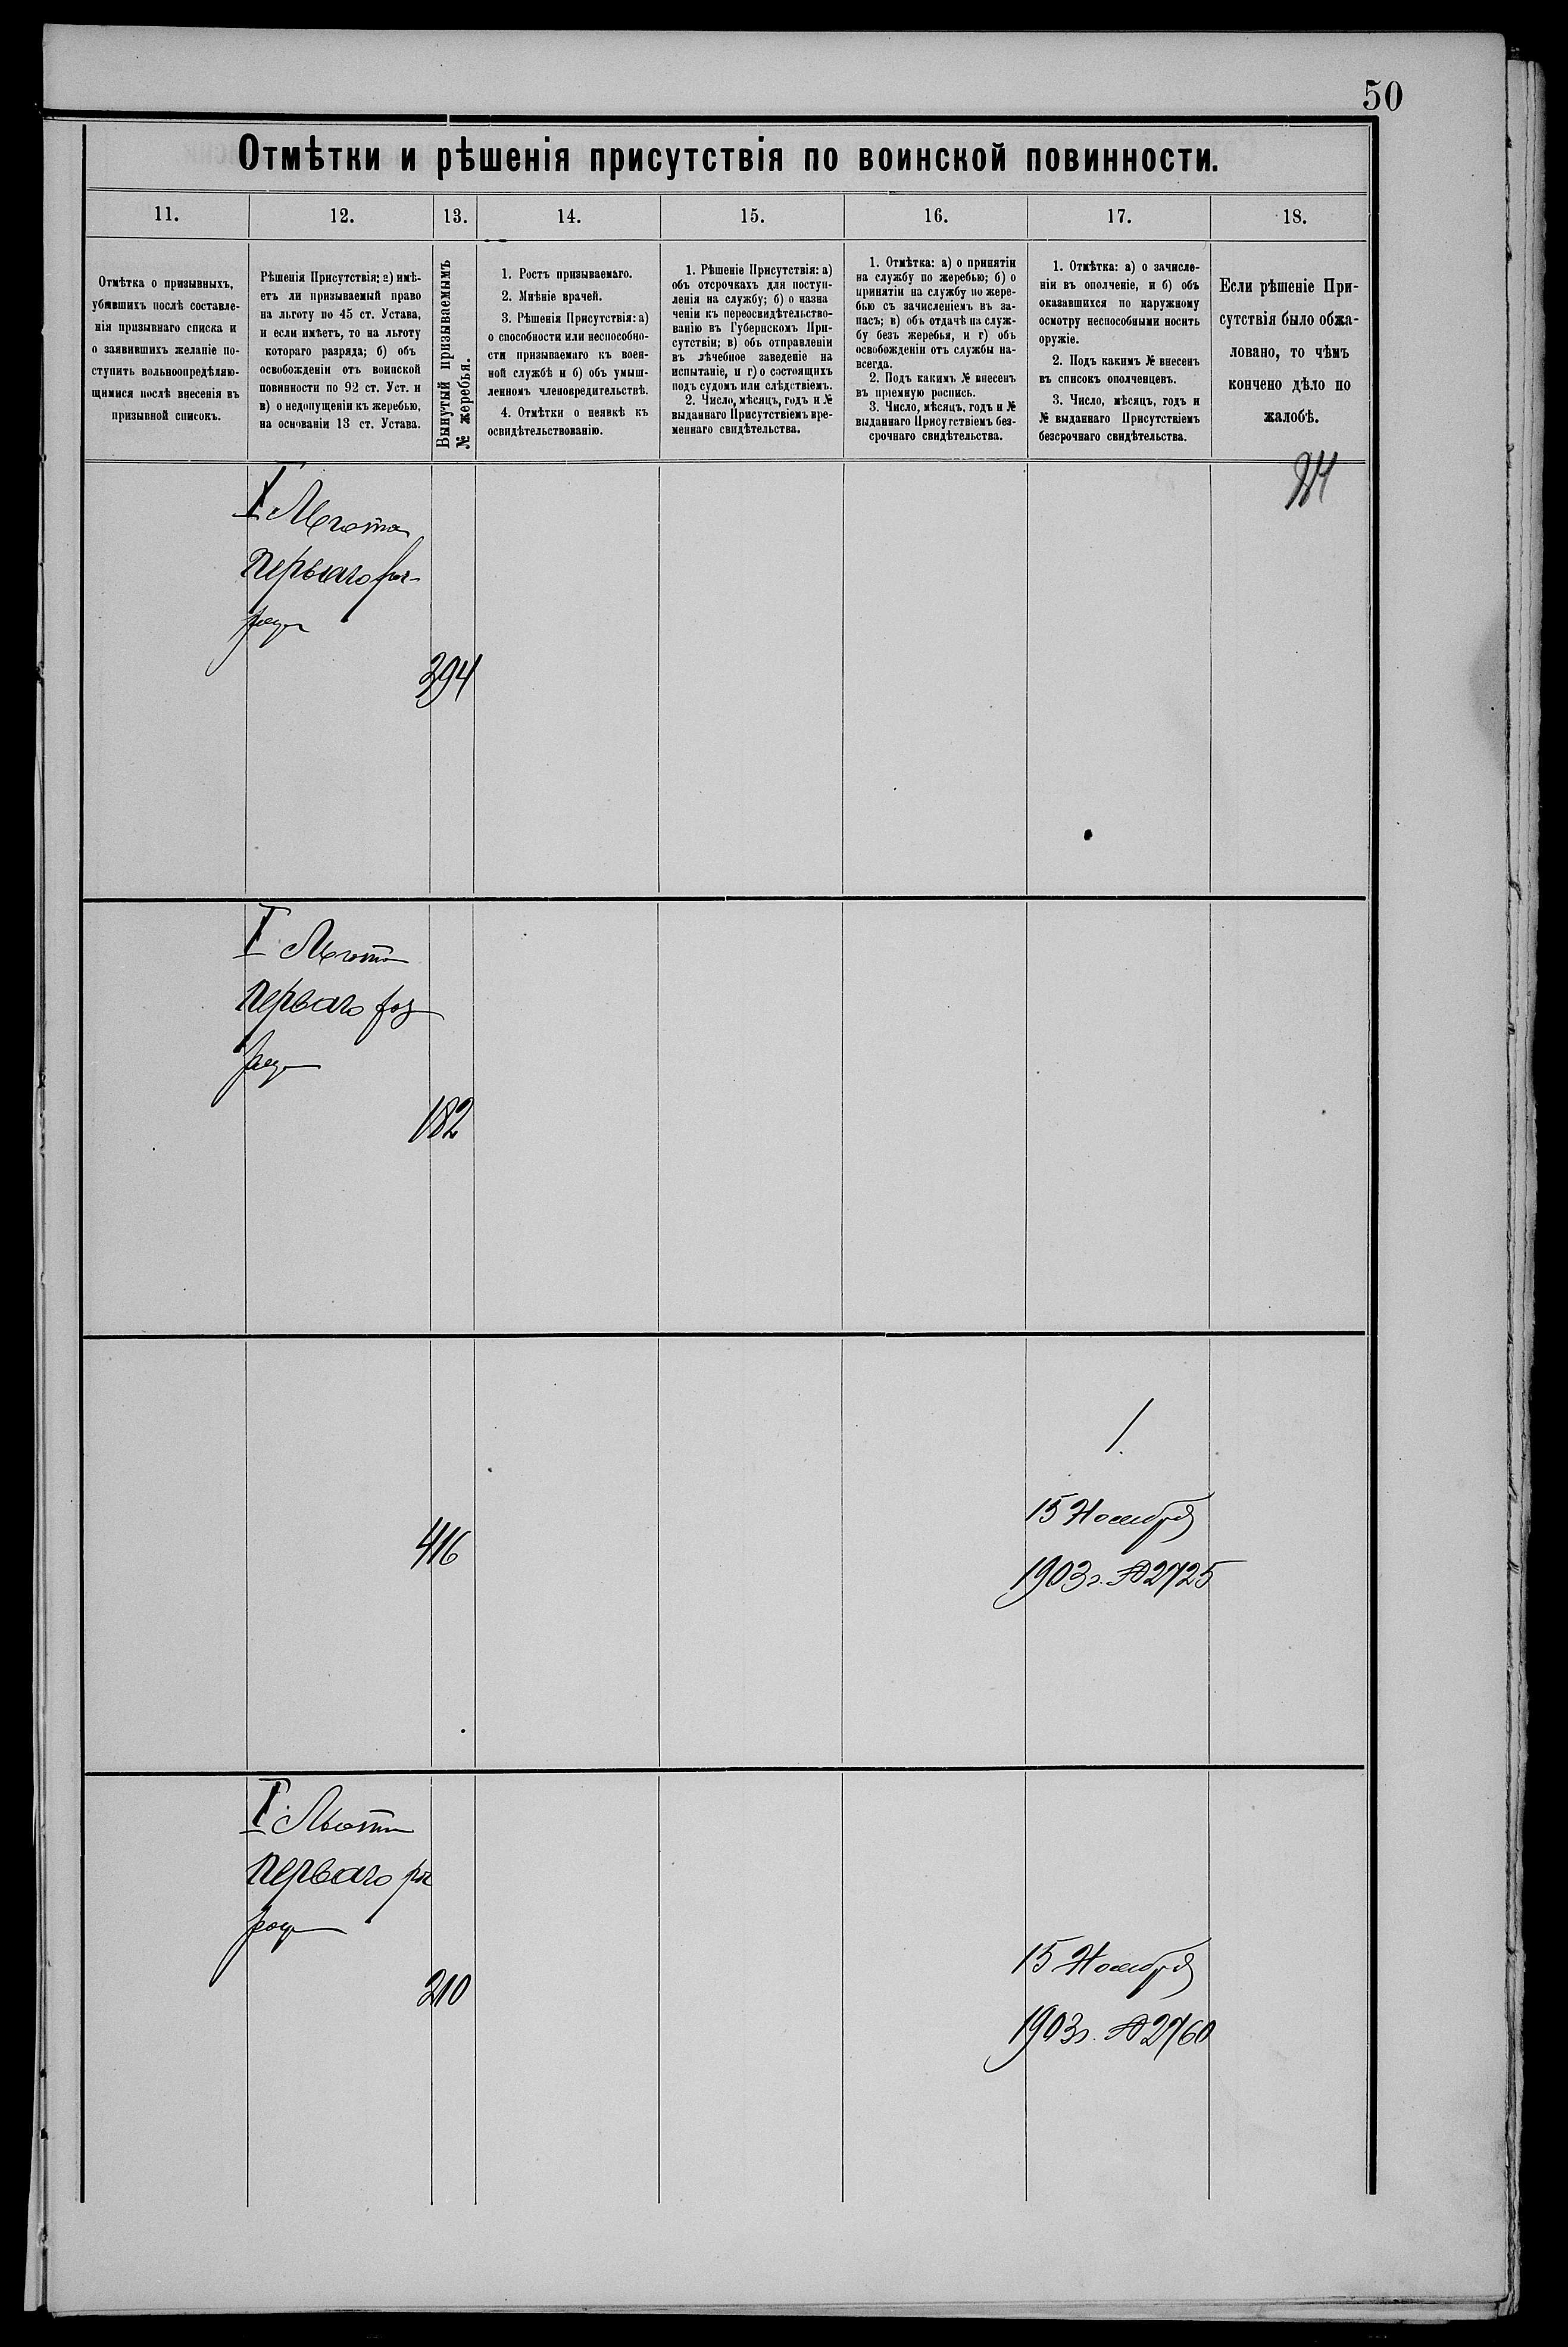 50
Отмѣтки и рѣшенія присутствія по воинской повинности.
11.
12.
13.
14.
15.
16.
17.
18.
Отмѣтка о призывныхъ,
убывшихъ послѣ составле-
нія призывнаго списка и
о заявившихъ желаніе по-
ступить вольноопредѣляю-
щимися послѣ внесенія въ
призывной списокъ.
Рѣшенія Присутствія: а) имѣ-
етъ ли призываемый право
на льготу по 45 ст. Устава,
и если имѣетъ, то на льготу
котораго разряда; б) объ
освобожденіи отъ воинской
повинности по 92 ст. Уст. и
в) о недопущеніи къ жеребью,
на основаніи 13 ст. Устава.
Вынутый призываемымъ
№ жеребья.
1. Ростъ призываемаго.
2. Мнѣніе врачей.
3. Рѣшенія Присутствія: а)
о способности или неспособно-
сти призываемаго къ воен-
ной службѣ и б) объ умыш-
ленномъ членовредительствѣ.
4. Отмѣтки о неявкѣ къ
освидѣтельствованію.
1. Рѣшеніе Присутствія: а)
объ отсрочкахъ для поступ-
ленія на службу; б) о назна
ченіи къ переосвидѣтельство-
ванію въ Губернскомъ При-
сутствіи; в) объ отправленіи
въ лѣчебное заведеніе на
испытаніе, и г) о состоящихъ
подъ судомъ или слѣдствіемъ.
2. Число, мѣсяцъ, годъ и №
выданнаго Присутствіемъ вре-
меннаго свидѣтельства.
1. Отмѣтка: а) о принятіи
на службу по жеребью; б) о
принятіи на службу по жере-
бью съ зачисленіемъ въ за-
пасъ; в) объ отдачѣ на служ-
бу безъ жеребья, и г) объ
освобожденіи отъ службы на-
всегда.
2. Подъ какимъ № внесенъ
въ пріемную роспись.
3. Число, мѣсяцъ, годъ и №
выданнаго Присутствіемъ без-
срочнаго свидѣтельства.
1. Отмѣтка: а) о зачисле-
ніи въ ополченіе, и б) объ
оказавшихся по наружному
осмотру неспособными носить
оружіе.
2. Подъ какимъ № внесенъ
въ списокъ ополченцевъ.
3. Число, мѣсяцъ, годъ и
№ выданнаго Присутствіемъ
безсрочнаго свидѣтельства.
Если рѣшеніе При-
сутствія было обжа-
ловано, то чѣмъ
кончено дѣло по
жалобѣ.
I Льгота
перваго раз-
ряда
394
I Льгота
перваго раз
ряда
182
416
1.
15 Ноября
1903 г. № 2725
I Льгота
перваго раз
ряда
210
15 Ноября
1903 г. № 2760